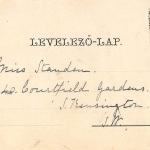 LEVELEZŐ-LAP.
Miss Standen.
Courtfield Gardens.
S. Kensington.
S.W.